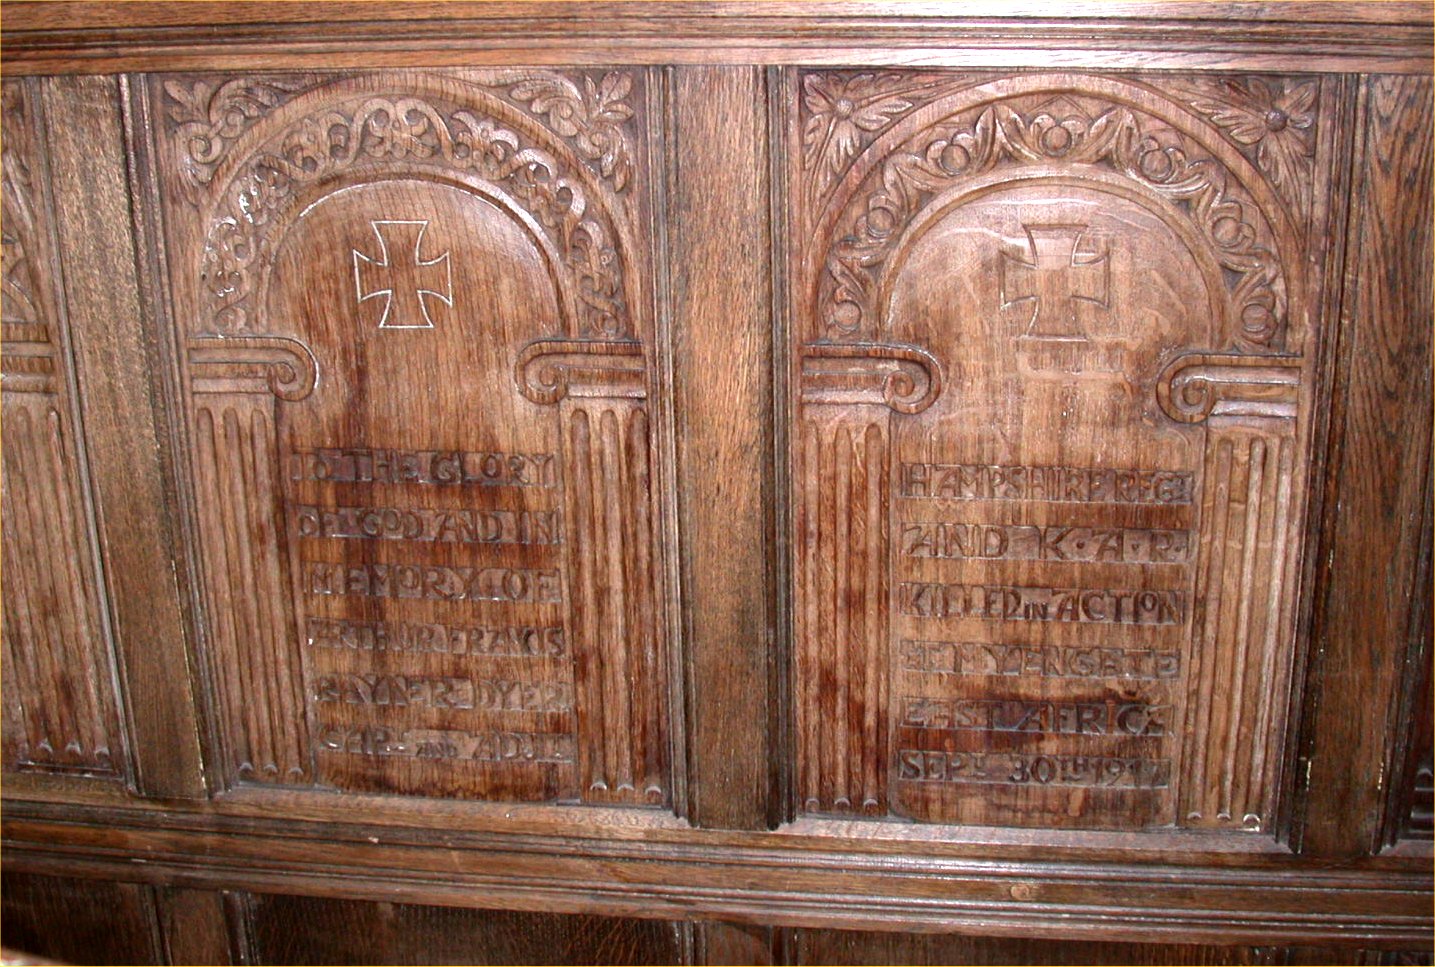 TO THE GLORY
OF GOD AND IN
MEMORY OF
ARTHUR FRAVIS
RAYNER DYER
CAPT AND ADJT
HAMPSHIRE REGT
AND K·A·R·
KILLED IN ACTION
AT MYENGATE
EAST AFRICA
SEPT 30TH 1917